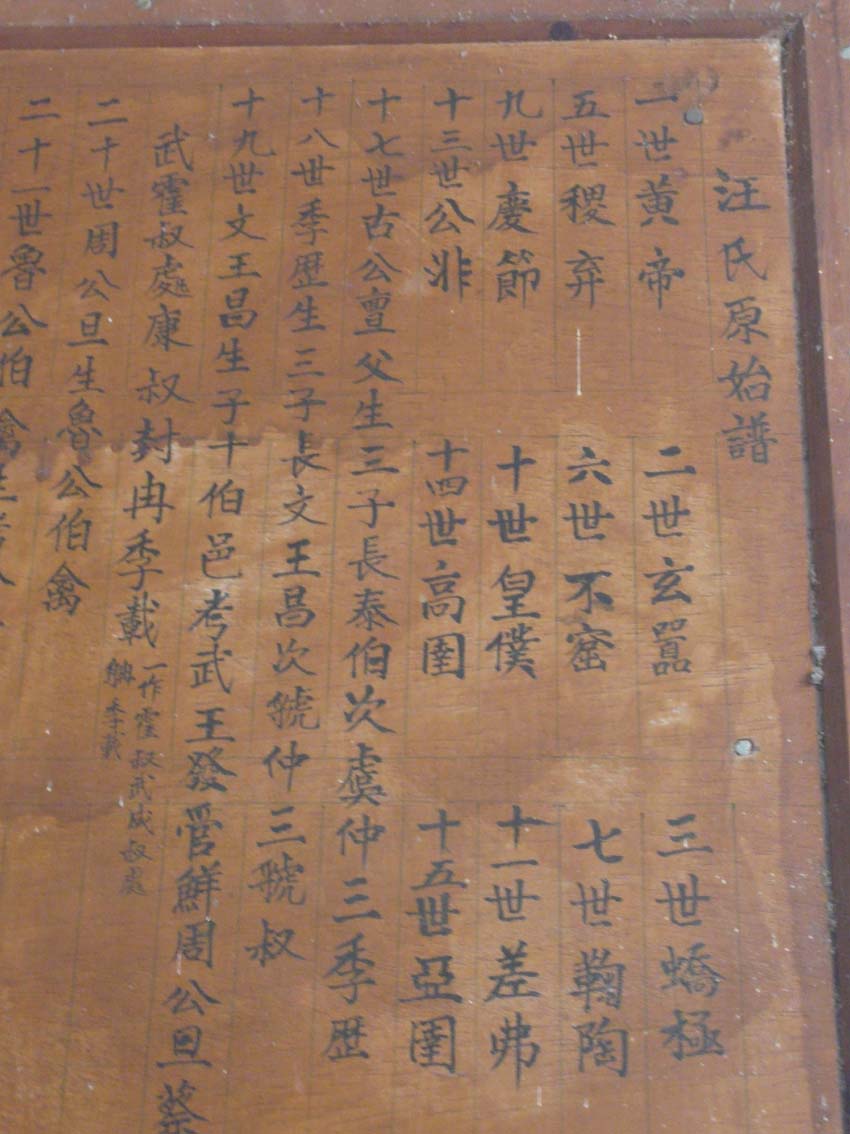 汪氏原始譜
一世黄帝 二世玄囂 三世蟜極
五世稷弃 六世不窋 七世鞠陶
九世慶節 十世皇僕 十一世差弗
十三世公非 十四世高圉 十五世亞圉
十七世古公亶父生三子長泰伯次虞仲三季歴
十八世季歴生三子長文王昌次虢仲三虢叔
十九世文王昌生子十伯邑考武王發管鮮周公旦蔡
武霍叔處康叔封冉季載
一作霍叔武成叔處
季載
二十世周公旦生魯公伯禽
二十一世魯公伯禽生